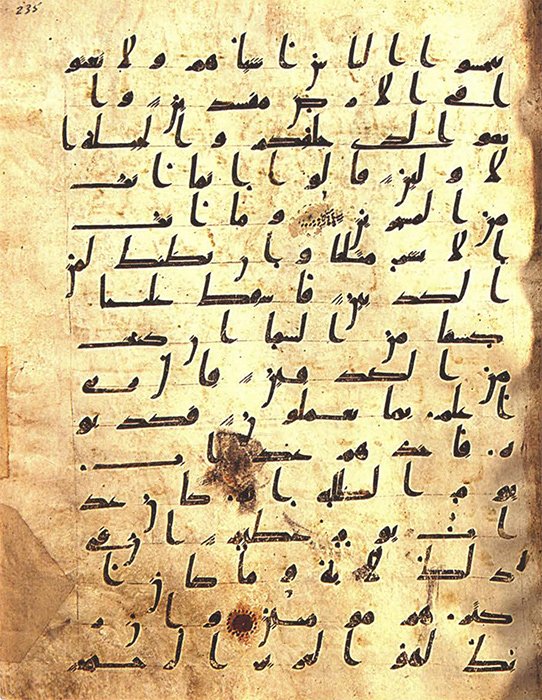 235
بخسوا الناس اشياهم ولا تعثو
ا في الارض مفسدين وا
تقوا الذي خلقكم والجبلة ا
لاولين قالوا انما انت
من المسحرين وما انت
الا بشر مثلنا وان نظنك لمن
الكذبين فاسقط علينا
كسفا من السما ان كنت
من الصدقين قال ربي
اعلم بما تعملون فكذبو
ه فاخذهم عذاب
يوم الظلة انه كان عذ
اب يوم عظيم ان في
ذلك لاية وما كان ا
كثرهم مومنين وان ر
بك لهو العزيز الرحيم